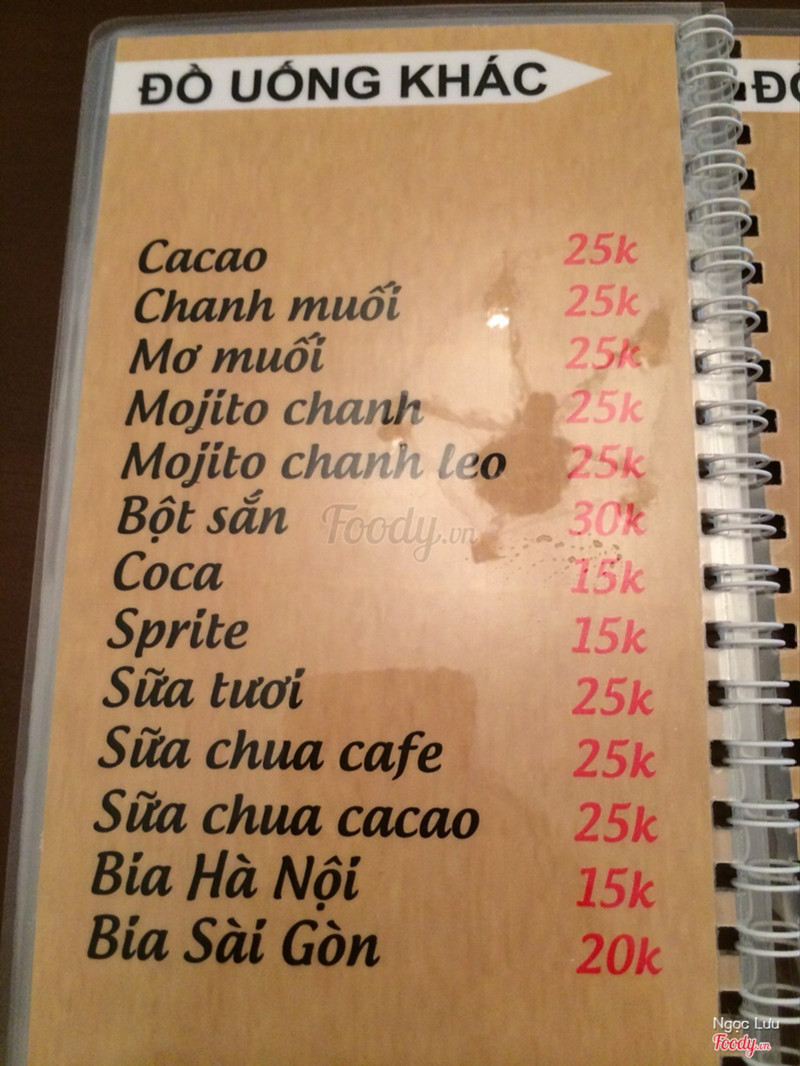 ĐỒ UỐNG KHÁC
Cacao 25k
Chanh muối 25k
Mơ muối 25k
Mojito chanh 25k
Mojito chanh leo 25k
Bột sắn 30k
Coca 15k
Sprite 15k
Sữa tươi 25k
Sữa chua cafe 25k
Sữa chua cacao 25k
Bia Hà Nội 15k
Bia Sài Gòn 20k
ĐỒ
Foody.vn
Ngọc Lưu
Foody.vn